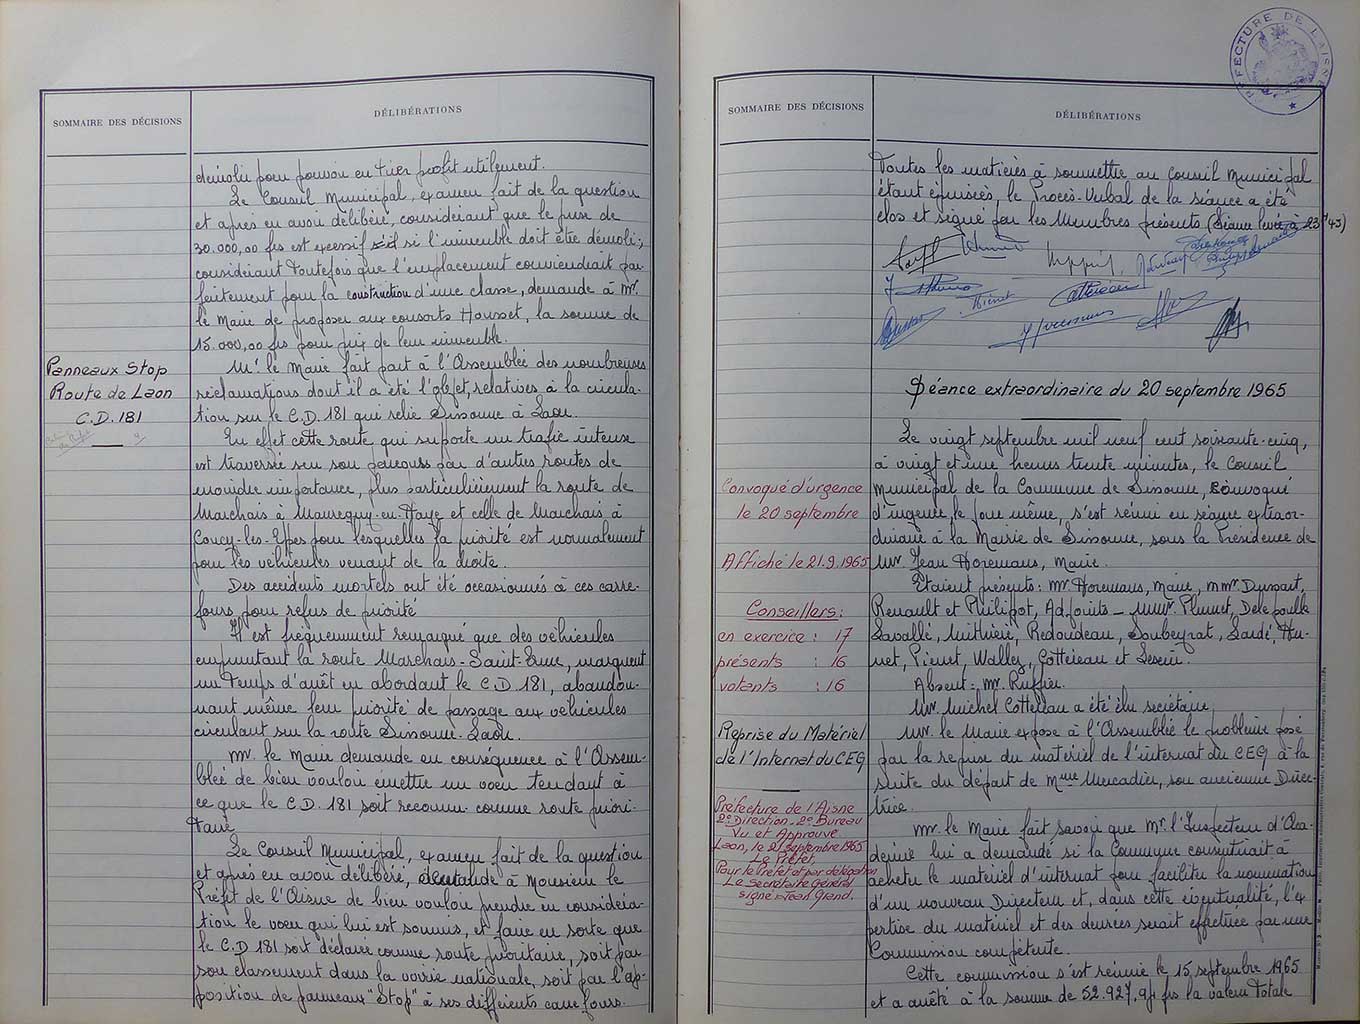 SOMMAIRE DES DÉCISIONS
DÉLIBÉRATIONS
démolie pour pouvoir en tirer profit utilement.
Le Conseil Municipal, examen fait de la question
et après en avoir délibéré, considérant que le prix de
30.000,00 frs est excessif si l'immeuble doit être démoli;
considérant toutefois que l'emplacement conviendrait par
faitement pour la construction d'une classe, demande à Mr.
le Maire de proposer aux consorts Housset, la somme de
15.000,00 frs pour prix de leur immeuble.
Panneaux Stop
Route de Laon
C.D. 181
Mr. le Maire fait part à l'Assemblée des nombreuses
réclamations dont il a été l'objet, relatives à la circula-
tion sur le C.D. 181 qui relie Sissonne à Laon.
En effet cette route qui supporte un trafic intense
est traversée sur son parcours par d'autres routes de
moindre importance, plus particulièrement la route de
Marchais à Mauregny-en-Haye et celle de Marchais à
Coucy-les-Eppes pour lesquelles la priorité est normalement
pour les véhicules venant de la droite.
Des accidents mortels ont été occasionnés à ces carre-
fours, pour refus de priorité
Il est fréquemment remarqué que des véhicules
empruntant la route Marchais-Saint-Erme, marquent
un temps d'arrêt en abordant le C.D. 181, abandon-
nant même leur priorité de passage aux véhicules
circulant sur la route Sissonne-Laon.
Mr. le Maire demande en conséquence à l'Assem-
blée de bien vouloir émettre un voeu tendant à
ce que le C.D. 181 soit reconnu comme route priori-
taire
Le Conseil Municipal, examen fait de la question
et après en avoir délibéré, demande à Monsieur le
Préfet de l'Aisne de bien vouloir prendre en considéra-
tion le voeu qui lui est soumis, et faire en sorte que
le C.D 181 soit déclaré comme route prioritaire, soit par
son classement dans la voirie nationale, soit par l'ap-
position de panneaux "Stop" à ses différents carrefours.
PRÉFECTURE DE L'AISNE
SOMMAIRE DES DÉCISIONS
DÉLIBÉRATIONS
Toutes les matières à soumettre au Conseil Municipal
étant épuisées, le Procès-Verbal de la séance a été
clos et signé par les Membres présents (Séance levée à 23H45)
Séance extraordinaire du 20 septembre 1965
Le vingt septembre mil neuf cent soixante-cinq,
à vingt et une heures trente minutes, le Conseil
Municipal de la Commune de Sissonne, convoqué
d'urgence, le jour même, s'est réuni en séance extraor-
dinaire à la Mairie de Sissonne, sous la Présidence de
Mr. Jean Horemans, Maire.
Convoqué d'urgence
le 20 septembre
Affiché le 21.9.1965
Conseillers:
en exercice : 17
présents : 16
votants : 16
Etaient présents: Mr. Horemans, Maire, MMr. Dussart,
Renault et Philipot, Adjoints - MMr. Plumet, Delepoulle
Lavallé, Mithieu, Redoudeau, Soubeyrat, Lardé, Hu-
net, Pienet, Wallez, Cottereau et Seseir.
Absent: Mr. Ruffier.
Mr. Michel Cottereau a été élu secrétaire.
Reprise du Matériel
de l'Internat du CEG
Mr. le Maire expose à l'Assemblée le problème posé
par la reprise du matériel de l'internat du CEG à la
suite du départ de Mme Mercadier, son ancienne Direc-
trice.
Préfecture de l'Aisne
2e Direction - 2e Bureau
Vu et Approuvé
Laon, le 21 septembre 1965
Le Préfet,
Pour le Préfet et par délégation
Le Secrétaire Général
signé: Jean Grand.
Mr. le Maire fait savoir que Mr. l'Inspecteur d'Aca-
démie lui a demandé si la Commune consentirait à
acheter le matériel d'internat pour faciliter la nomination
d'un nouveau Directeur et, dans cette éventualité, l'ex
pertise du matériel et des denrées serait effectuée par une
Commission compétente.
Cette commission s'est réunie le 15 septembre 1965
et a arrêté à la somme de 52.927,91 frs la valeur totale